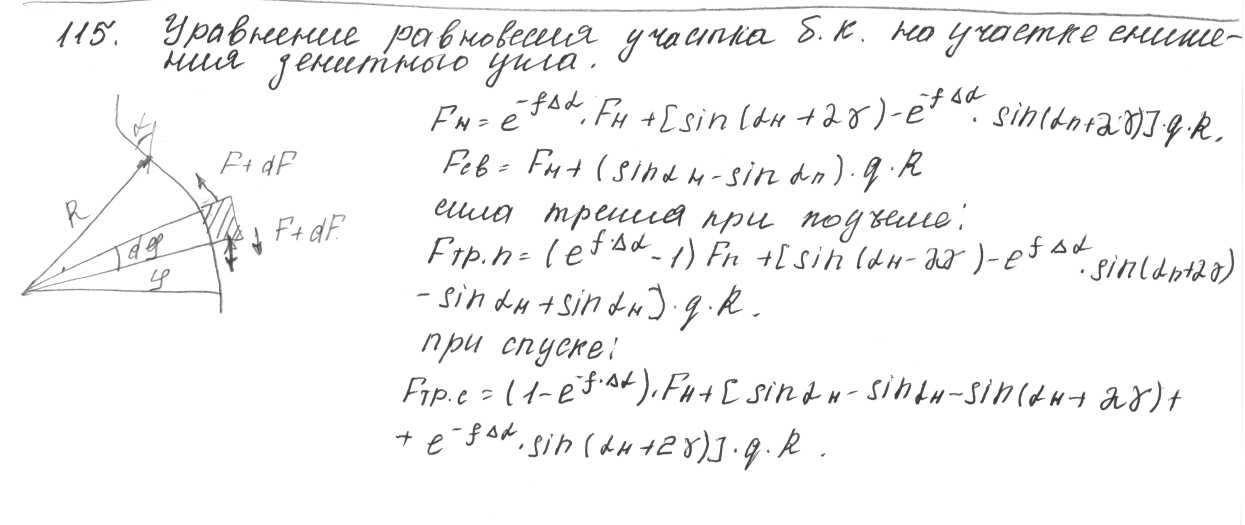 115. Уравнение равновесия участка б.к. на участке сниже-
ния зенитного угла.
Fн = e^{-fΔα}·Fн + [sin(αн + 2γ) - e^{-fΔα}· sin(αп+2γ)]·q·R.
Fсв = Fн + (sin αн - sin αп)·q·R
сила трения при подъеме:
Fтр.п = (e^{f·Δα} - 1) Fп + [sin(αн - 2γ) - e^{fΔα}·sin(αп+2γ)
- sin αн + sin αн]·q·R.
при спуске:
Fтр.с = (1 - e^{-f·Δα})·Fн + [sin αн - sin αн - sin(αн + 2γ) +
+ e^{-fΔα}·sin(αн+2γ)]·q·R.
α
F+dF
R
F+dF
dφ
φ